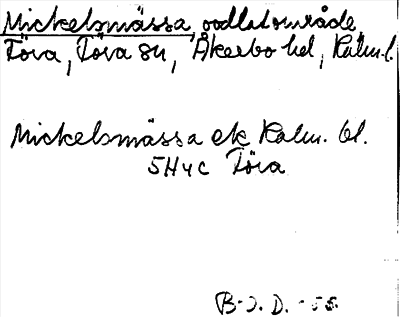 Mickelsmässa, oodlat område,
Föra, Föra sn, Åkerbo hd, Kalm. l.
Mickelsmässa ek Kalm. bl.
5H4c Föra
B-J. D. -55